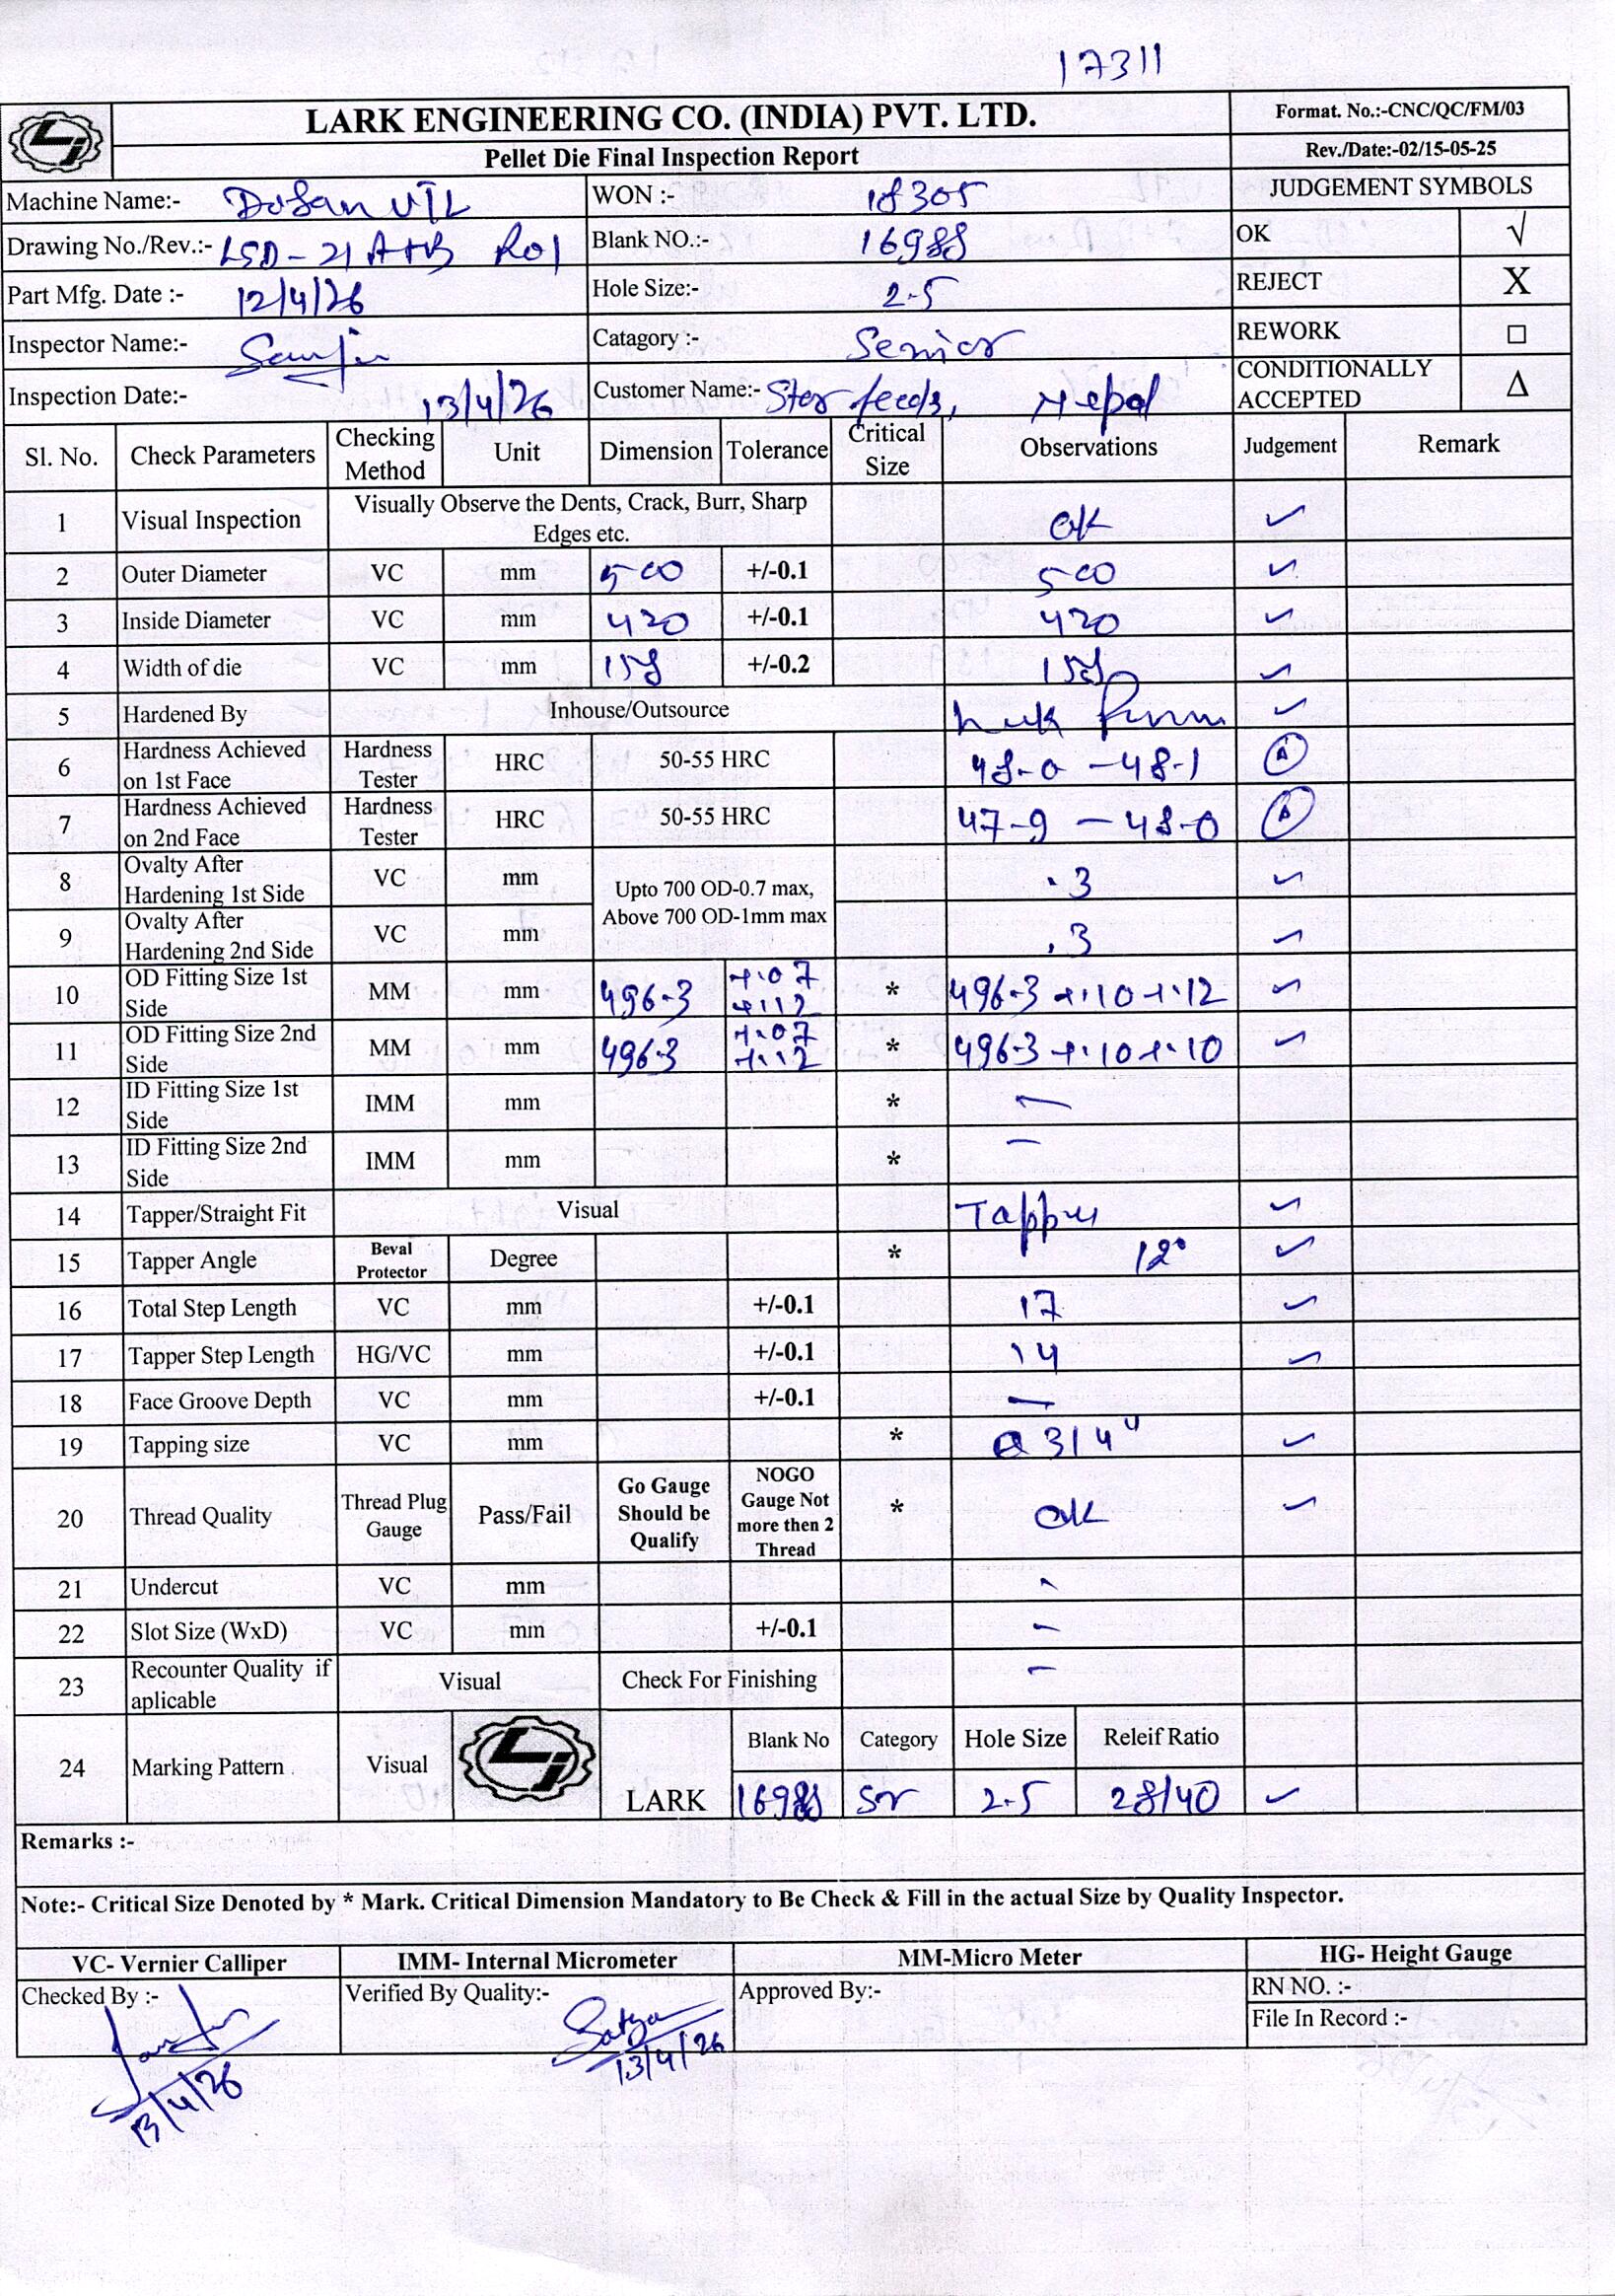 17311
LARK ENGINEERING CO. (INDIA) PVT. LTD. Format. No.:-CNC/QC/FM/03
Pellet Die Final Inspection Report Rev./Date:-02/15-05-25
Machine Name:- DoSan VTL WON :- 18305 JUDGEMENT SYMBOLS
Drawing No./Rev.:- LSD-21 A+B R01 Blank NO.:- 16988 OK √
Part Mfg. Date :- 12/4/26 Hole Size:- 2.5 REJECT X
Inspector Name:- Catagory :- Senior REWORK □
Inspection Date:- 13/4/26 Customer Name:- Star feeds, Nepal CONDITIONALLY ACCEPTED Δ
Sl. No. Check Parameters Checking Method Unit Dimension Tolerance Critical Size Observations Judgement Remark
1 Visual Inspection Visually Observe the Dents, Crack, Burr, Sharp Edges etc. OK ✓
2 Outer Diameter VC mm 500 +/-0.1 500 ✓
3 Inside Diameter VC mm 420 +/-0.1 420 ✓
4 Width of die VC mm 158 +/-0.2 158 ✓
5 Hardened By Inhouse/Outsource ✓
6 Hardness Achieved on 1st Face Hardness Tester HRC 50-55 HRC 48.0 - 48.1
7 Hardness Achieved on 2nd Face Hardness Tester HRC 50-55 HRC 47.9 - 48.0
8 Ovalty After Hardening 1st Side VC mm Upto 700 OD-0.7 max, Above 700 OD-1mm max .3 ✓
9 Ovalty After Hardening 2nd Side VC mm .3 ✓
10 OD Fitting Size 1st Side MM mm 496.3 +.07 +.12 * 496.3 +.10 +.12 ✓
11 OD Fitting Size 2nd Side MM mm 496.3 +.07 +.12 * 496.3 +.10 +.10 ✓
12 ID Fitting Size 1st Side IMM mm * —
13 ID Fitting Size 2nd Side IMM mm * —
14 Tapper/Straight Fit Visual Tapper ✓
15 Tapper Angle Beval Protector Degree * 12° ✓
16 Total Step Length VC mm +/-0.1 17 ✓
17 Tapper Step Length HG/VC mm +/-0.1 14 ✓
18 Face Groove Depth VC mm +/-0.1 —
19 Tapping size VC mm * 3/4" ✓
20 Thread Quality Thread Plug Gauge Pass/Fail Go Gauge Should be Qualify NOGO Gauge Not more then 2 Thread * OK ✓
21 Undercut VC mm -
22 Slot Size (WxD) VC mm +/-0.1 -
23 Recounter Quality if aplicable Visual Check For Finishing -
24 Marking Pattern . Visual LARK Blank No Category Hole Size Releif Ratio
16988 Sr 2.5 28/40 ✓
Remarks :-
Note:- Critical Size Denoted by * Mark. Critical Dimension Mandatory to Be Check & Fill in the actual Size by Quality Inspector.
VC- Vernier Calliper IMM- Internal Micrometer MM-Micro Meter HG- Height Gauge
Checked By :- Verified By Quality:- Approved By:- RN NO. :-
File In Record :-
Satya
13/4/26 13/4/26